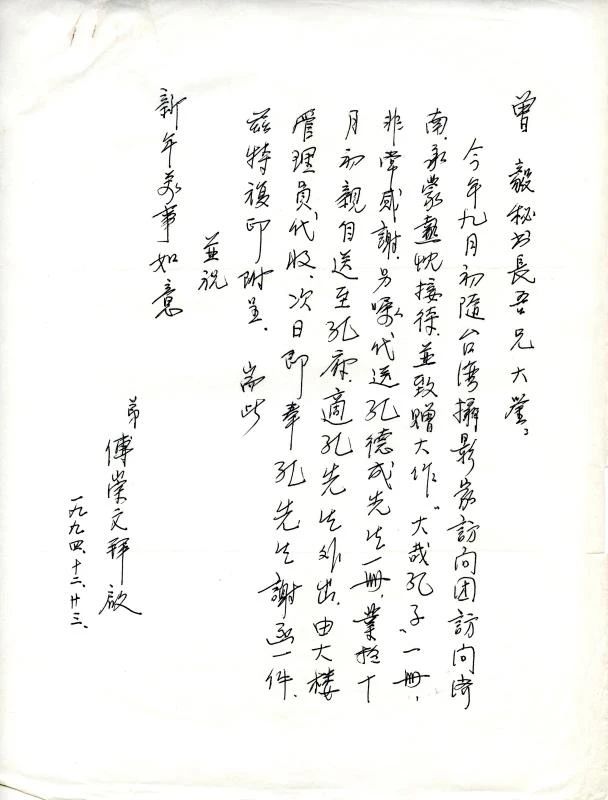 曾毅秘书長吾兄大鉴:
今年九月初隨台湾攝影家訪问团訪问济
南,承蒙熱忱接待,並致贈大作“大哉孔子”一册,
非常感謝。另囑代送孔德成先生一册,業於十
月初親自送至孔府,適孔先生外出,由大楼
管理員代收,次日即奉孔先生謝函一件,
兹特複印附呈。 耑此
並祝
新年萬事如意
弟
傅崇文拜啟
一九九四、十二、廿三、